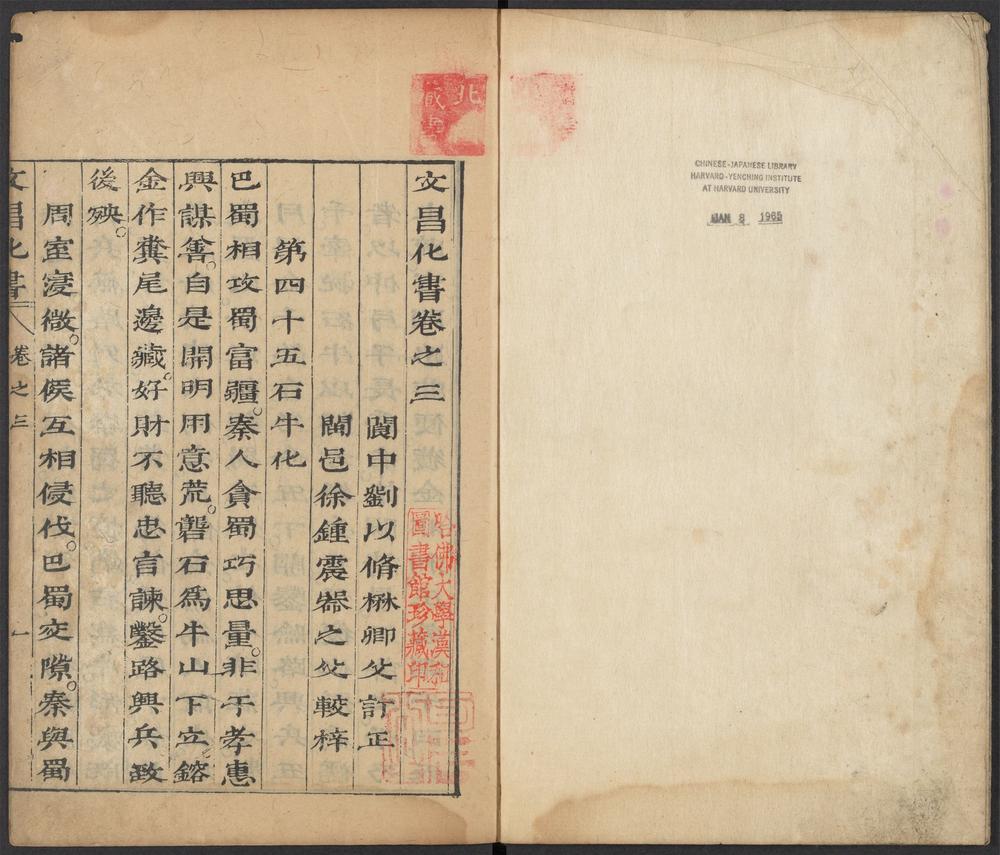 文昌化書卷之三
閬中劉以脩楙卿父訂正
閬邑徐鍾震器之父較梓
第四十五石牛化
巴蜀相攻蜀富疆。秦人貪蜀巧思量。非干孝惠
興謀筭。自是開明用意荒。礱石爲牛山下立。鎔
金作糞尾邊藏。好財不聽忠言諫。鑿路興兵致
後殃。
周室寖微。諸侯互相侵伐。巴蜀交隙。秦與蜀
文昌化書 卷之三 一
北
藏書
哈佛大學漢和
圖書館珍藏印
CHINESE-JAPANESE LIBRARY
HARVARD-YENCHING INSTITUTE
AT HARVARD UNIVERSITY
JAN 8 1965